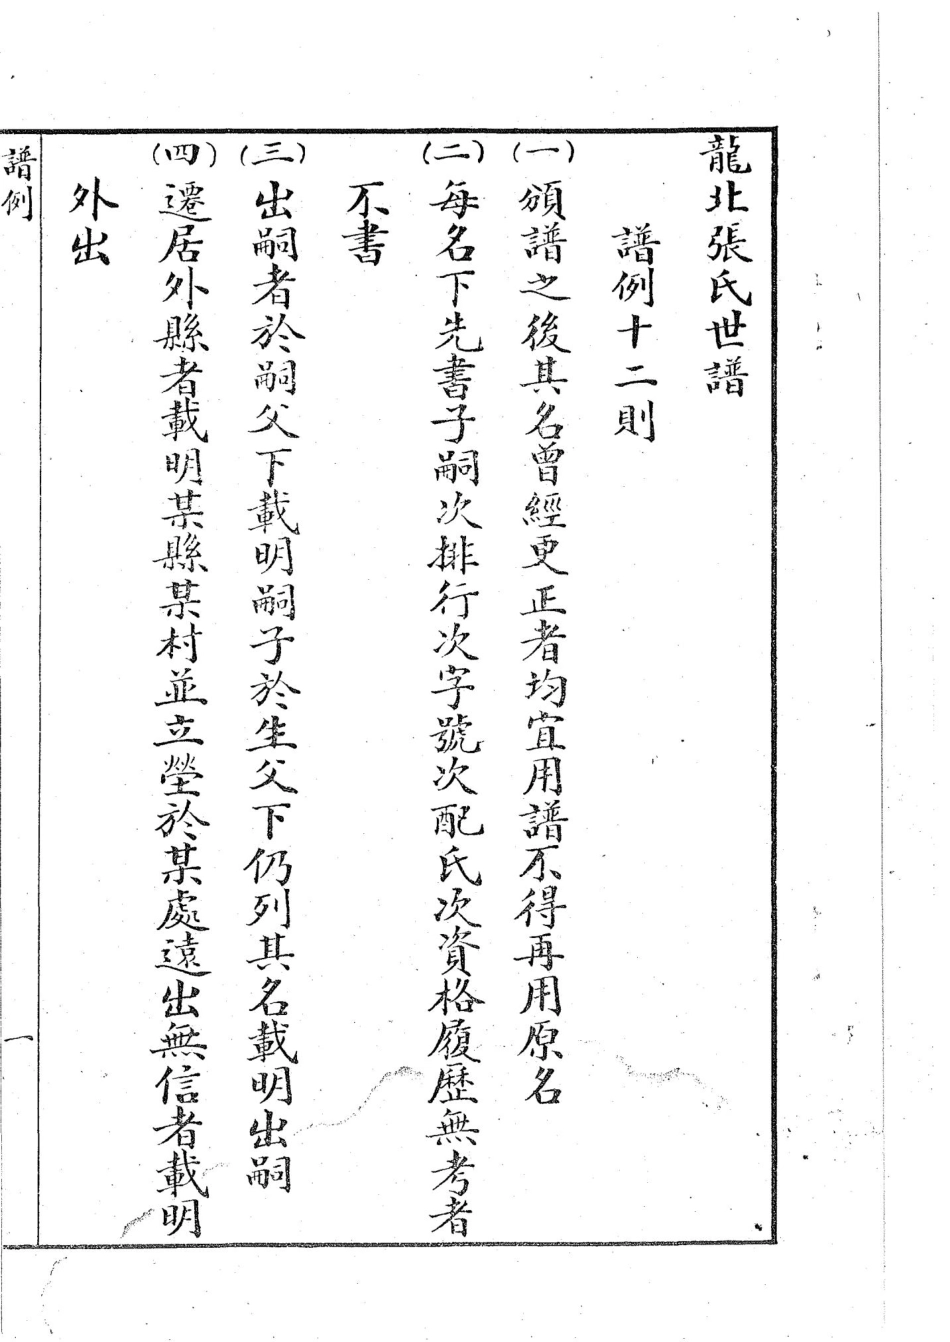 龍北張氏世譜
譜例十二則
(一)頒譜之後其名曾經更正者均宜用譜不得再用原名
(二)每名下先書子嗣次排行次字號次配氏次資格履歷無考者
不書
(三)出嗣者於嗣父下載明嗣子於生父下仍列其名載明出嗣
(四)遷居外縣者載明某縣某村並立塋於某處遠出無信者載明
外出
譜例
一